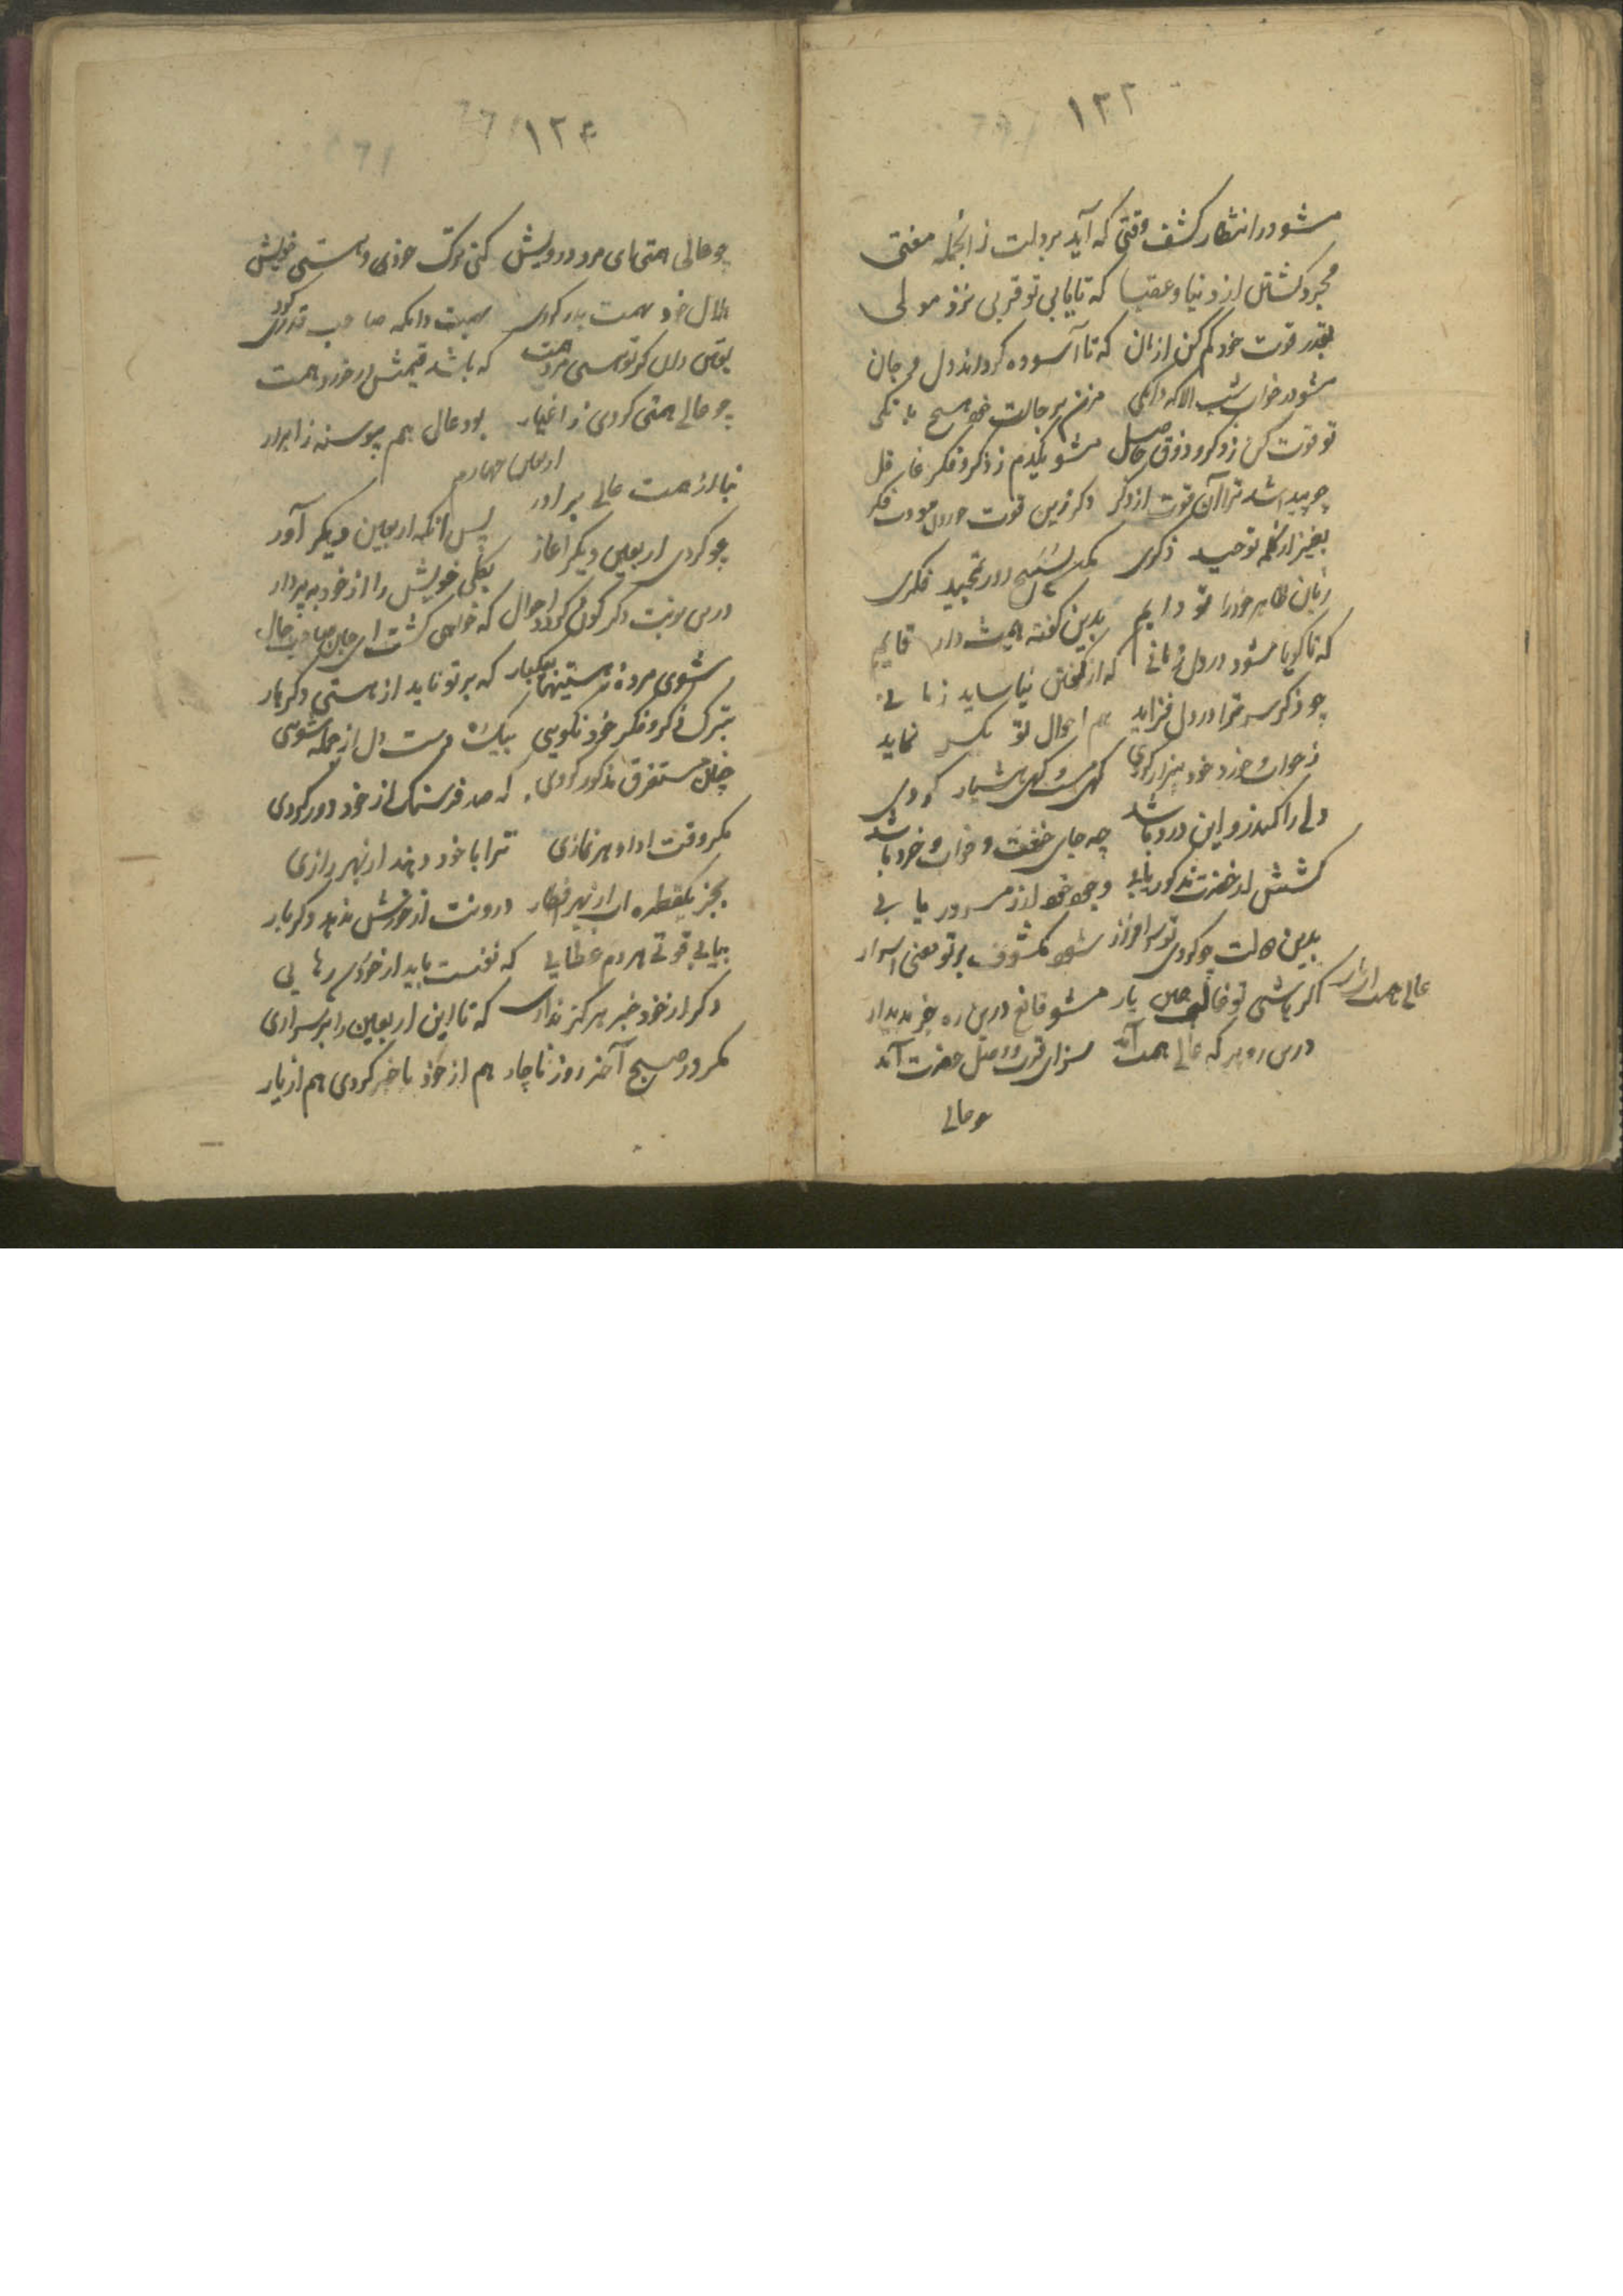 ۱۲۳
مشو در انتظار کشف وقتی که آید بر دلت زانجمله معنی
مجرد کشتن از دنیا و عقبا که تا یابی تو قربی نزد مولی
بقدر قوت خود کم کن از نان که تا آسوده کرداند دل و جان
مشو در خواب شب الا که دانکی مزن بر حالت خود هیچ بانکی
تو قوت کن ز ذکر و ذوق حاصل مشو یکدم ز ذکر و فکر غافل
چو پیدا شد ترا آن قوت از ذکر دکر زین قوت در دل فکر
بغیر از کلمه توحید ذکری مکن تسبیح و در تمجید فکری
زبان ظاهر خود را تو دایم بدین کفته همیشه دار قایم
که تا کویا شود در دل زبانی که از کفتن نیاساید زمانی
چو ذکر سر ترا در دل فزاید هم احوال تو یکسر نماید
ز خواب و خورد خود بیزار کردی کهی مست و کهی هشیار کردی
دلی را کندرو این درد باشد چه جای خفت و خواب و خورد باشد
کشش از حضرت مذکور یابی وجود خود از مسرور یابی
بدین حالت چو کردی تو سرافراز شود مکشوف بر تو معنی اسرار
اکر باشی تو طالب یار مشو قانع درین ره جز بدیدار
عالی همت
درین ره هر که عالی همت آمد سزای قرب و وصل حضرت آمد
چو عالی
۱۲۴
چو عالی همتی ای مرد درویش کنی ترک خودی و هستی خویش
هلال خود همت بدر کردی همیت دانکه صاحب قدر کردی
یقین دان کر تو هستی مرد همت که باشد قیمتش در خورد همت
چو عالی همتی کردی ز اغیار بود عال هم پیوسته ز ابرار
اربعین چهارم
بنا از همت عالی برادر پس آنکه اربعین دیکر آور
چو کردی اربعین دیکر آغاز بکلی خویش را از خود بپرداز
درین نوبت دکر کون کردد احوال که خواهی کشت ای جان صاحب حال
شوی مرده ز هستیها بیکبار که بر تو ناید از هستی دکر بار
بترک ذکر و فکر خود نکویی بیک ره دست دل از جمله شویی
چنان مستغرق مذکور کردی که صد فرسنک از خود دور کردی
مکر وقت ادا هر نمازی ترا با خود دهند از بهر رازی
بجز یکقطره آب از بهر افطار درونت از خورش ندهد دکر بار
بیابی قوتی هر دم عطایی که نفست یابد از خوردن رهایی
دکر از خود خبر هرکز نداری که تا این اربعین را بر سر آری
مکر در صبح آخر روز ناچار هم از خود با خبر کردی هم از یار